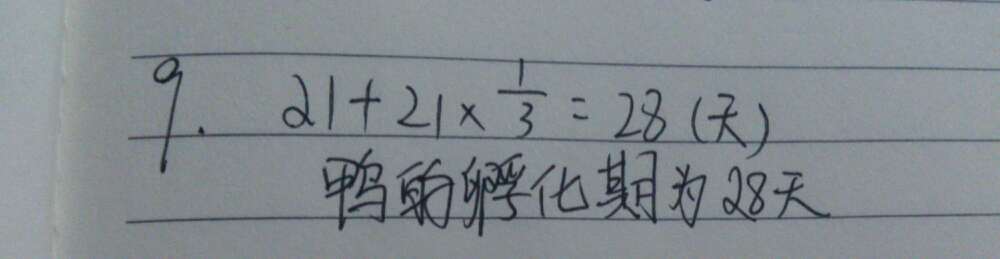 9. 21+21×1/3=28(天)
鸭的孵化期为28天